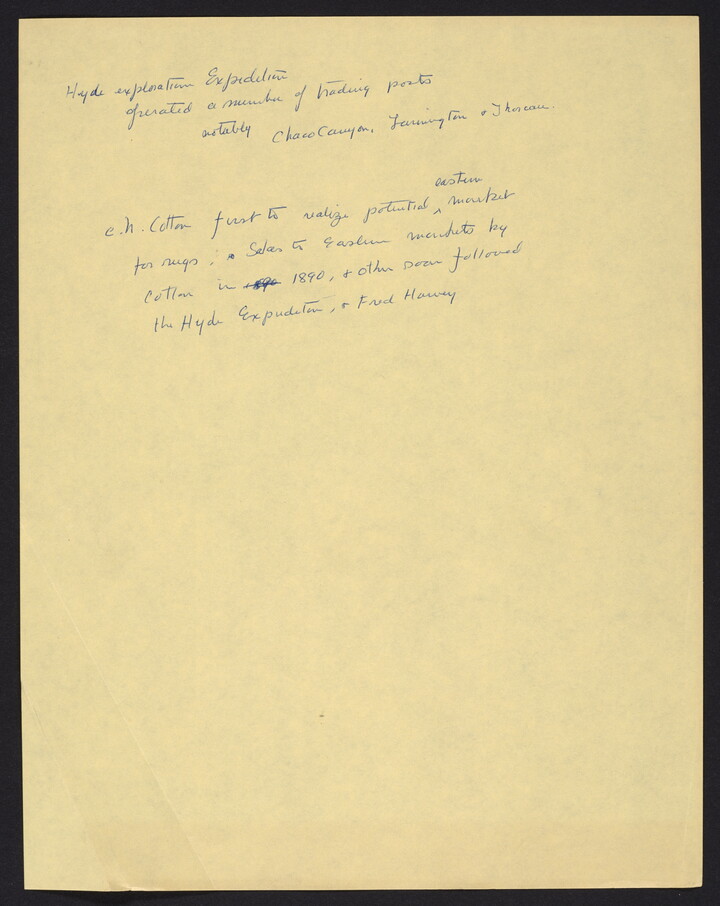 Hyde exploration Expedition
operated a number of trading posts
notably Chaco Canyon, Farmington & Thoreau.
eastern
C.N. Cotton first to realize potential ^ market
for rugs; Sales to Eastern markets by
Cotton in 1890, & other soon followed
the Hyde Expedition, & Fred Harvey